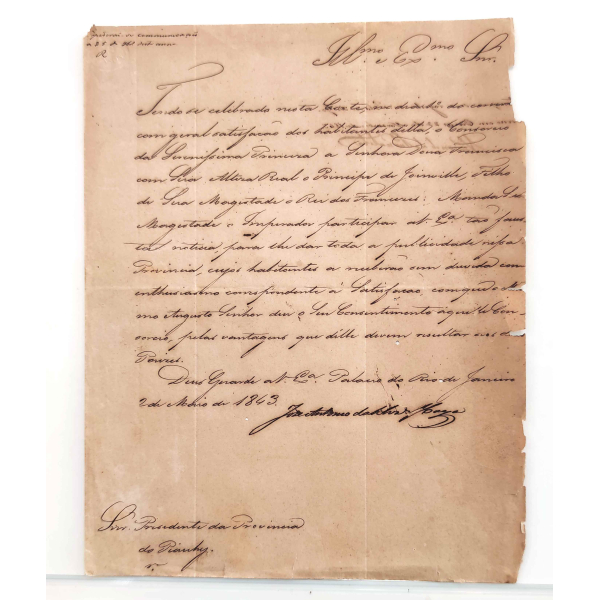 a 25 de
Illmo e Exmo Snr.
Tendo-se celebrado nesta Corte, no dia 1º. do corrente
com geral satisfação dos habitantes della, o Consorcio
da Serenissima Princeza a Senhora Dona Francisca
com Sua Alteza Real o Principe de Joinville, Filho
de Sua Magestade o Rei dos Francezes: Manda Sua
Magestade o Imperador participar a V. Exa. tão faus-
ta noticia, para lhe dar toda a publicidade nessa
Provincia, cujos habitantes a receberão sem duvida com
enthusiasmo correspondente à Satisfação com que o Mes-
mo Augusto Senhor deu o Seu Consentimento aquelle Con-
sorcio, pelas vantagens que delle devem resultar aos dois
Paizes.
Deus Guarde a V. Exa. Palacio do Rio de Janeiro
2 de Maio de 1843.
Snr. Presidente da Provincia
do Piauhy.